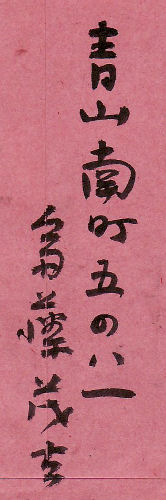 青山南町五の八一
斎藤茂吉